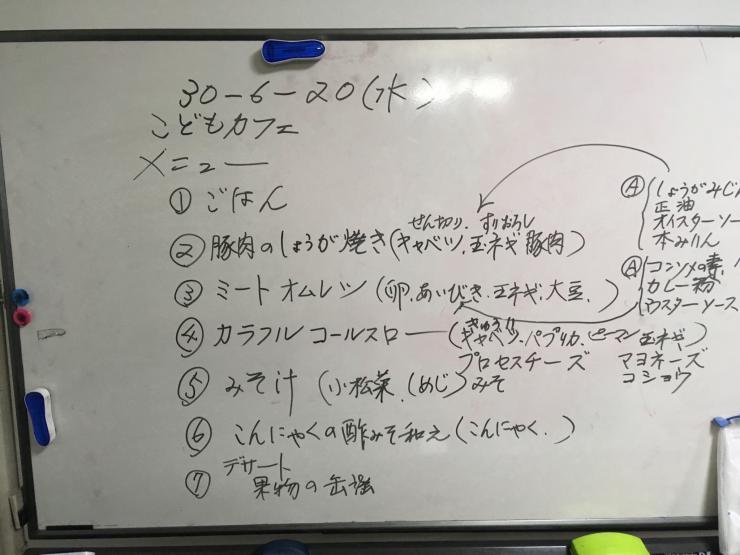 30-6-20(水)
こどもカフェ
メニュー
① ごはん
せん切り. すりおろし
② 豚肉のしょうが焼き(キャベツ. 玉ネギ 豚肉)
③ ミートオムレツ (卵. あいびき. 玉ネギ. 大豆. )
きゅうり
④ カラフルコールスロー (キャベツ. パプリカ. ピーマン 玉ネギ)
プロセスチーズ マヨネーズ
コショウ
⑤ みそ汁 (小松菜. (めじ) みそ
⑥ こんにゃくの酢みそ和え(こんにゃく. )
デザート
⑦ 果物の缶詰
Ⓐ しょうがみじん
正油
オイスターソー
本みりん
Ⓐ コンソメの素
カレー粉
ウスターソース